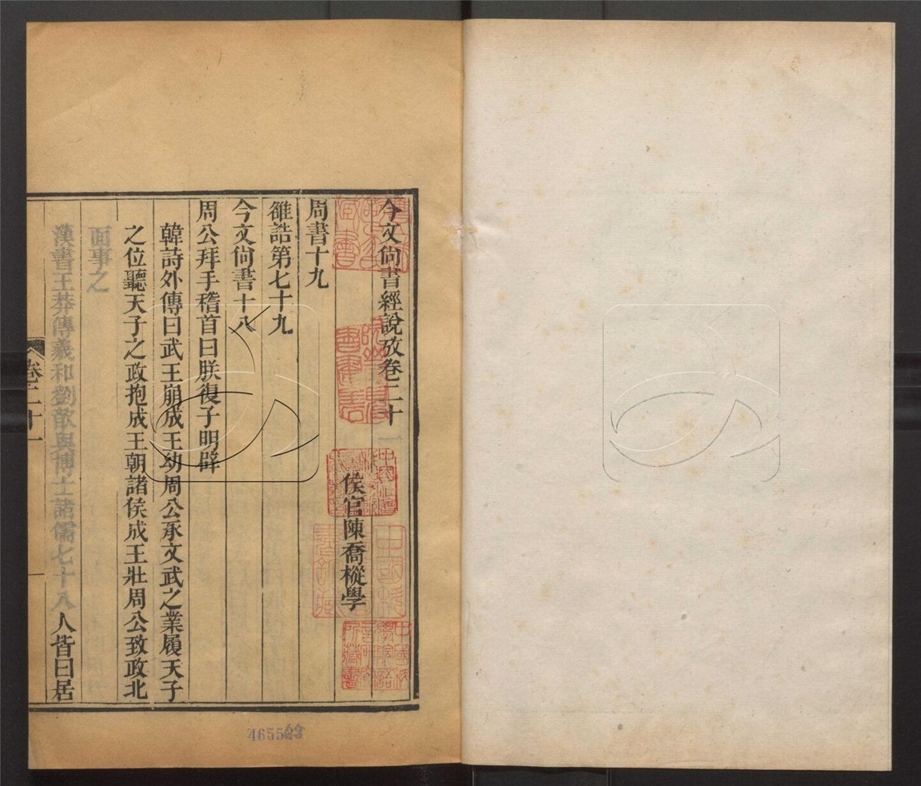 今文尙書經說攷卷二十一
侯官陳喬樅學
周書十九
雒誥第七十九
今文尙書十八
周公拜手稽首曰朕復子明辟
韓詩外傳曰武王崩成王幼周公承文武之業履天子
之位聽天子之政抱成王朝諸侯成王壯周公致政北
面事之
漢書王莽傳羲和劉歆與博士諸儒七十八人皆曰居
卷二十一
一
465523